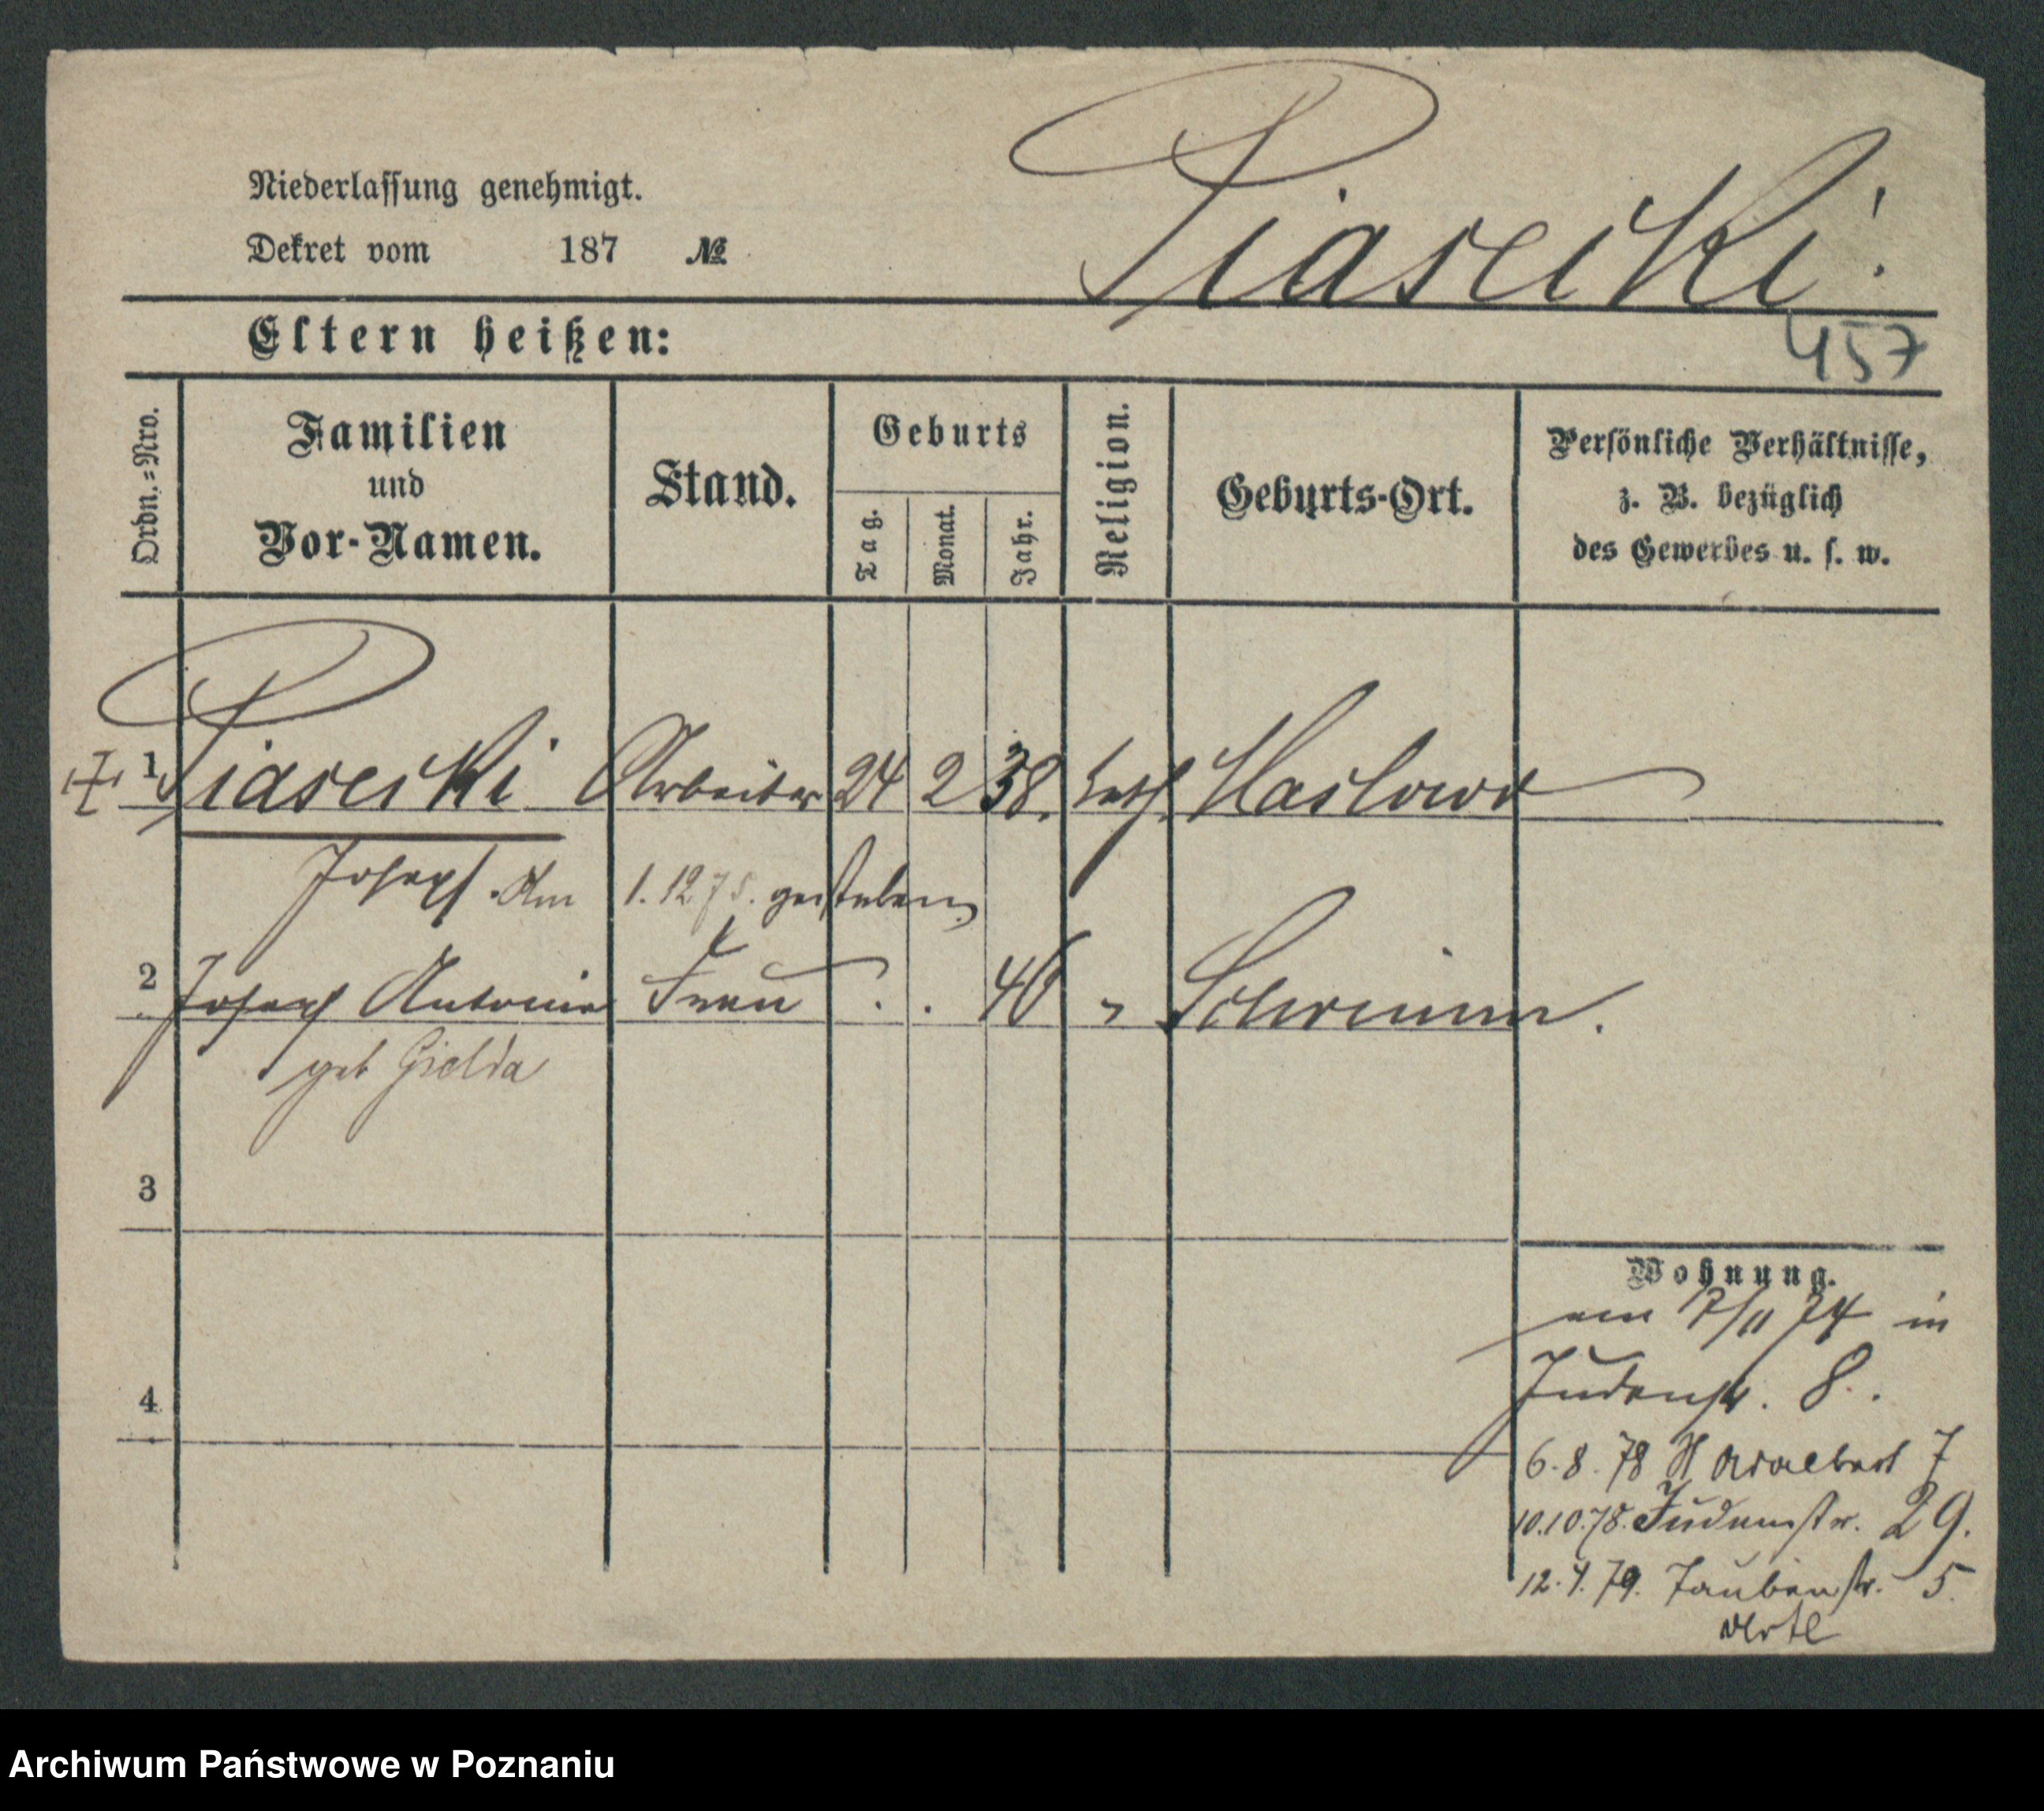 Niederlassung genehmigt.
Dekret vom 187 №
Piasecki
457
Eltern heißen:
Ordn.=Nro.
Familien
und
Vor-Namen.
Stand.
Geburts
Tag.
Monat.
Jahr.
Religion.
Geburts-Ort.
Persönliche Verhältnisse,
z. B. bezüglich
des Gewerbes u. s. w.
1 Piasecki Arbeiter 24 2 38. kath.
Joseph. Am 1. 12 75. gestorben
2 Joseph Antonie Frau . . 46 " Schrimm.
geb Gielda
3
Wohnung.
am 17/11 74 in
Judenstr. 8.
4
6.8.78 St Adalbert 7
10.10.78. Judenstr. 29.
12.4.79. Taubenstr. 5.
Archiwum Państwowe w Poznaniu